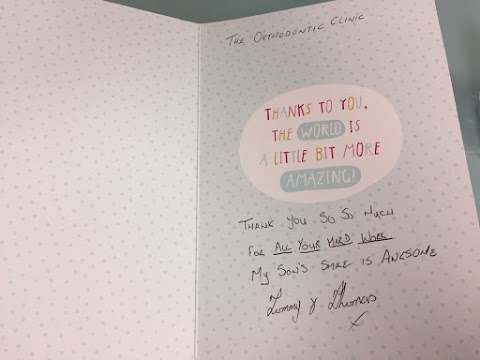 THE ORTHODONTIC CLINIC
THANKS TO YOU,
THE WORLD IS
A LITTLE BIT MORE
AMAZING!
THANK YOU SO SO MUCH
FOR ALL YOUR HARD WORK
MY SON'S SMILE IS AWESOME
Tommy & Thomas
x